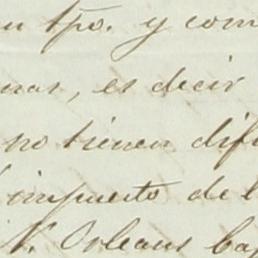 tpo. y com
nas, es decir
no tienen dif
impuesto de l
N. Orleans ba